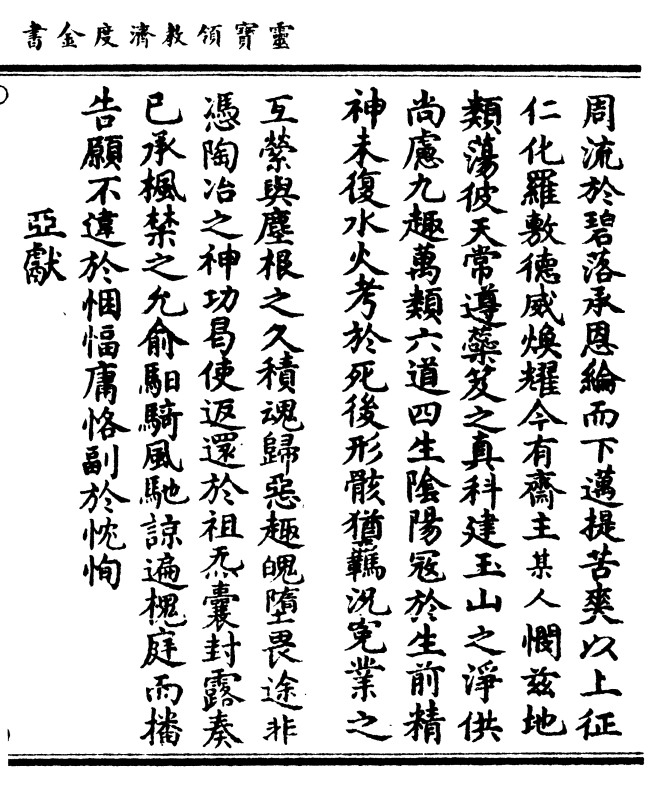 靈寶領教濟度金書
周流於碧落承恩綸而下邁提苦爽以上征
仁化羅敷德威煥耀今有齋主某人憫茲地
類蕩彼天常遵蘂笈之真科建玉山之淨供
尚慮九趣萬類六道四生陰陽冦於生前精
神未復水火考於死後形骸猶羈況寃業之
互縈與塵根之久積魂歸惡趣魄墮畏途非
憑陶冶之神功曷使返還於祖炁囊封露奏
已承楓禁之允俞馹騎風馳諒遍槐庭而播
告願不違於悃愊庸恪副於忱恂
亞獻